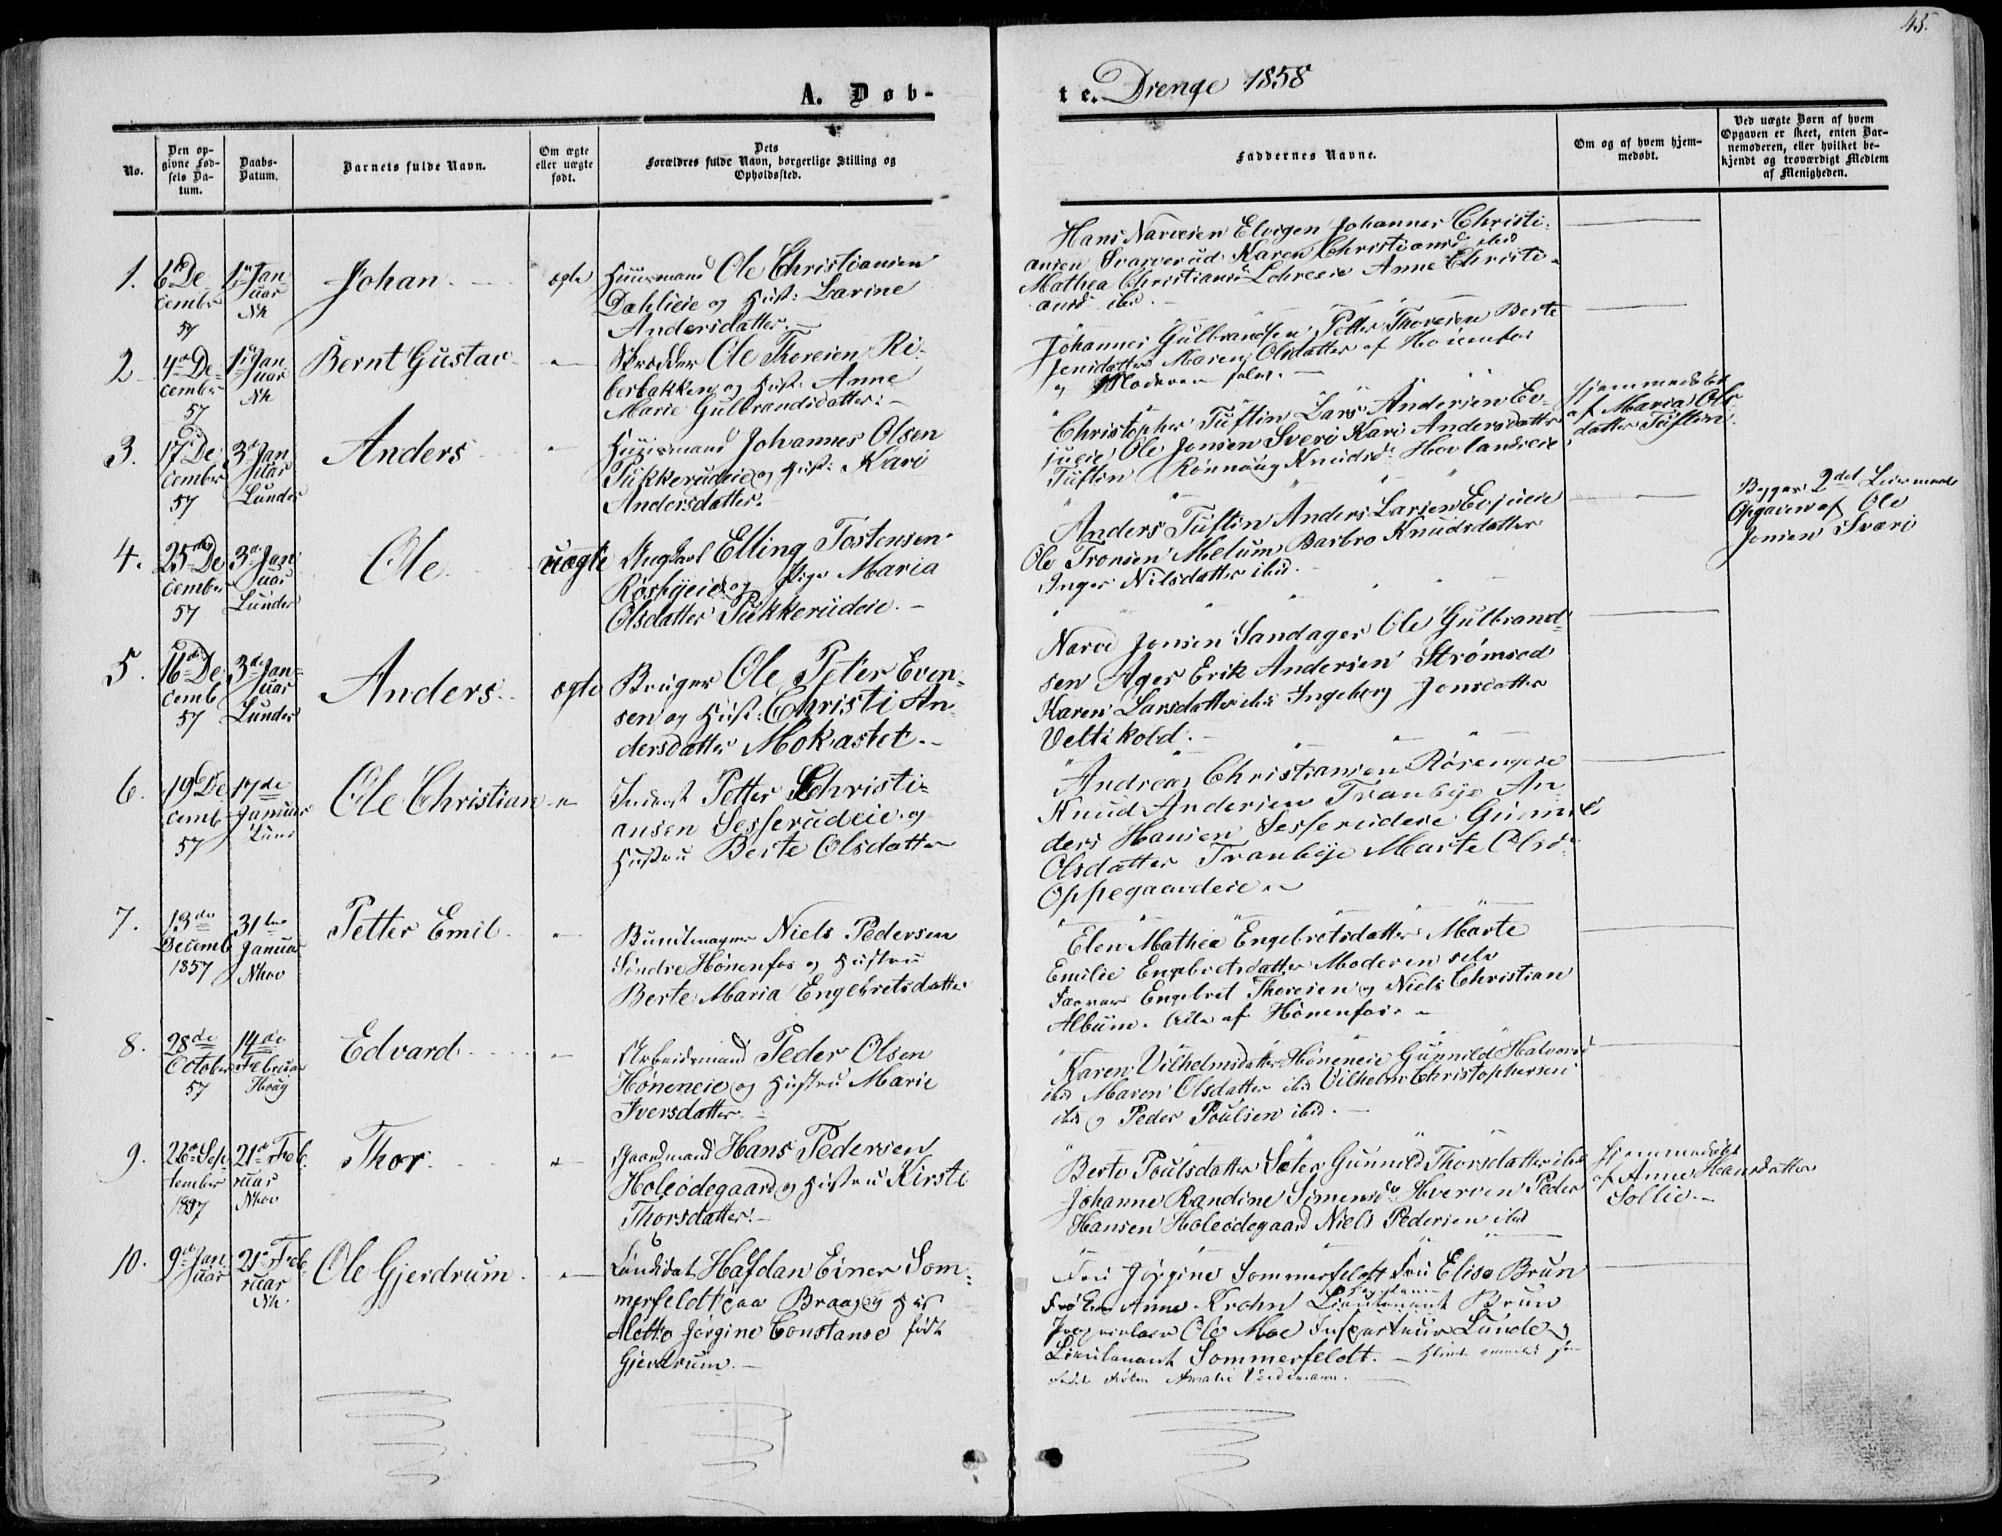 45.
A. Døb-
te. Drenge 1858
No.
Den op-
givne Fød-
sels Da-
tum.
Daabs-
Datum.
Barnets fulde Navn.
Om ægte
eller uægte
født.
Dets
Forældres fulde Navn, borgerlige Stilling og
Opholdssted.
Faddernes Navne.
Om og af hvem hjem-
medøbt.
Ved uægte Børn af hvem
Opgaven er skeet, enten Bar-
nemoderen, eller hvilket be-
kjendt og troværdigt Medlem
af Menigheden.
1.
6te De-
cember
57
1ste Jan-
uar
Nh
Johan
ægte
Huusmand Ole Christiansen
Dahlieie og Hust: Larine
Andersdatter.
Hans Narvesen Elvigen Johannes Christi-
ansen Svarverud Karen Christiansd ibid
Mathea Christiansd Anne Christi-
ansd ibid.
2
4de De-
cember
57
1ste Jan-
uar
Nh
Bernt Gustav
"
Skrædder Ole Thoresen Ri-
berbakken og Hust: Anne
Marie Gulbrandsdatter.
Johannes Gulbrandsen, Petter Thoresen Berte
Jensdatter Maren Olsdatter af Hønenfos
og Moderen selv.
3.
17de De-
cember
57
3die Jan-
uar
Lunder
Anders
"
Huusmand Johannes Olsen
Tukkerudeie og Hust: Kari
Andersdatter.
Christopher Tuftin Lars Andersen Ev-
jueie, Ole Jonsen Sveri Kari Andersdatter
Tuftin Rønnaug Knudsd: Hovlandseie
Hjemmedøbt
af Maria Ols-
datter Tuftin
4.
25de De-
cember
57
3die Jan-
uar
Lunder
Ole
uægte
Ungkarl Elling Tostensen
Røsbyeie og Pige Maria
Olsdatter Tukkerudeie.
Anders Tuftin Anders Larsen Evjueie
Ole Tronsen Melum, Barbro Knudsdatter
Inger Nilsdatter ibid.
Begges 2det Leiermaal
Opgaven af Ole
Jonsen Sværi
5.
16de De-
cemb
57
3die Jan-
uar
Lunder
Anders
ægte
Bruger Ole Peter Even-
sen og Hust: Christi An-
dersdatter Mokastet.
Narve Jonsen Sandager Ole Gulbrand-
sen Ager Erik Andersen Strømsod
Karen Larsdatter ibid Ingeborg Jonsdatter
Veltikold.
6.
19 De-
cemb
57
17de
Januar
Lund
Ole Christian
"
Inderst Petter Christi-
ansen Sesserudeie og
Hustru Berte Olsdatter
Andreas Christiansen Røsengeie
Knud Andersen Tranbye An-
ders Hansen Sesserudeie Gunnild
Olsdatter Tranbye Marte Olsd
Oppegaardeie
7.
13de
Decemb
1857
31te
Januar
Nhov
Petter Emil
"
Buntmager Niels Pedersen
Søndre Hønenfos og Hustru
Berte Maria Engebretsdatter
Elen Mathea Engebretsdatter Marte
Emilie Engebretsdatter Moderen selv
Farver Engebret Thoresen og Niels Christian
Album. Alle af Hønenfos.
8.
28de
October
57
14de
Februar
Houg
Edvard
"
Arbeidsmand Peder Olsen
Høneneie og Hustru Marie
Iversdatter.
Karen Vilhelmsdatter Høneneie Gunnild Halvorsd
ibid Maren Olsdatter ibid Vilhelm Christophersen
ibid og Peder Poulsen ibid.
9.
22de Sep-
tember
1857
21de Feb-
ruar
Nhov
Thor
"
Gaardmand Hans Pedersen
Holeødegaard og Hustru Kirsti
Thorsdatter.
Berte Poulsdatter Sæter Gunnild Thorsdatter ibid
Johanne Randine Simensd Hverven Peder
Hansen Holeødegaard Niels Pedersen ibid
Hjemmedøbt
af Anne Hansdatter
Sollie.
10.
9de Jan-
uar
21de Feb-
ruar
Nh.
Ole Gjerdrum
"
Candidat Halfdan Einer Som-
merfeldt paa Braag og Hus
Alette Jørgine Constanse født
Gjerdrum.
Fru Jørgine Sommerfeldt Fru Elise Brun
Frøken Anne Krohn Lieutenant Brun
Proprietær Ole Moe Inspecteur Lunde og
Lieutenant Sommerfeldt.
Frøken Amalie